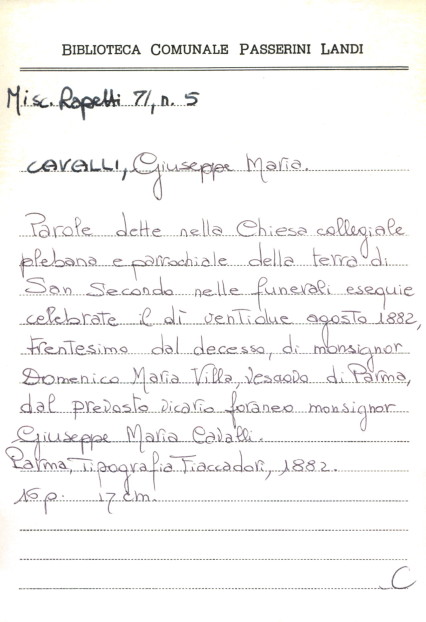 BIBLIOTECA COMUNALE PASSERINI LANDI
Misc. Rapetti 71, n. 5
CAVALLI, Giuseppe Maria.
Parole dette nella Chiesa collegiale
plebana e parrochiale della terra di
San Secondo nelle funerali esequie
celebrate il dì ventidue agosto 1882,
trentesimo dal decesso, di monsignor
Domenico Maria Villa, vescovo di Parma,
dal prevosto vicario foraneo monsignor
Giuseppe Maria Cavalli.
Parma, Tipografia Fiaccadori, 1882.
16 p. 17 cm.
C